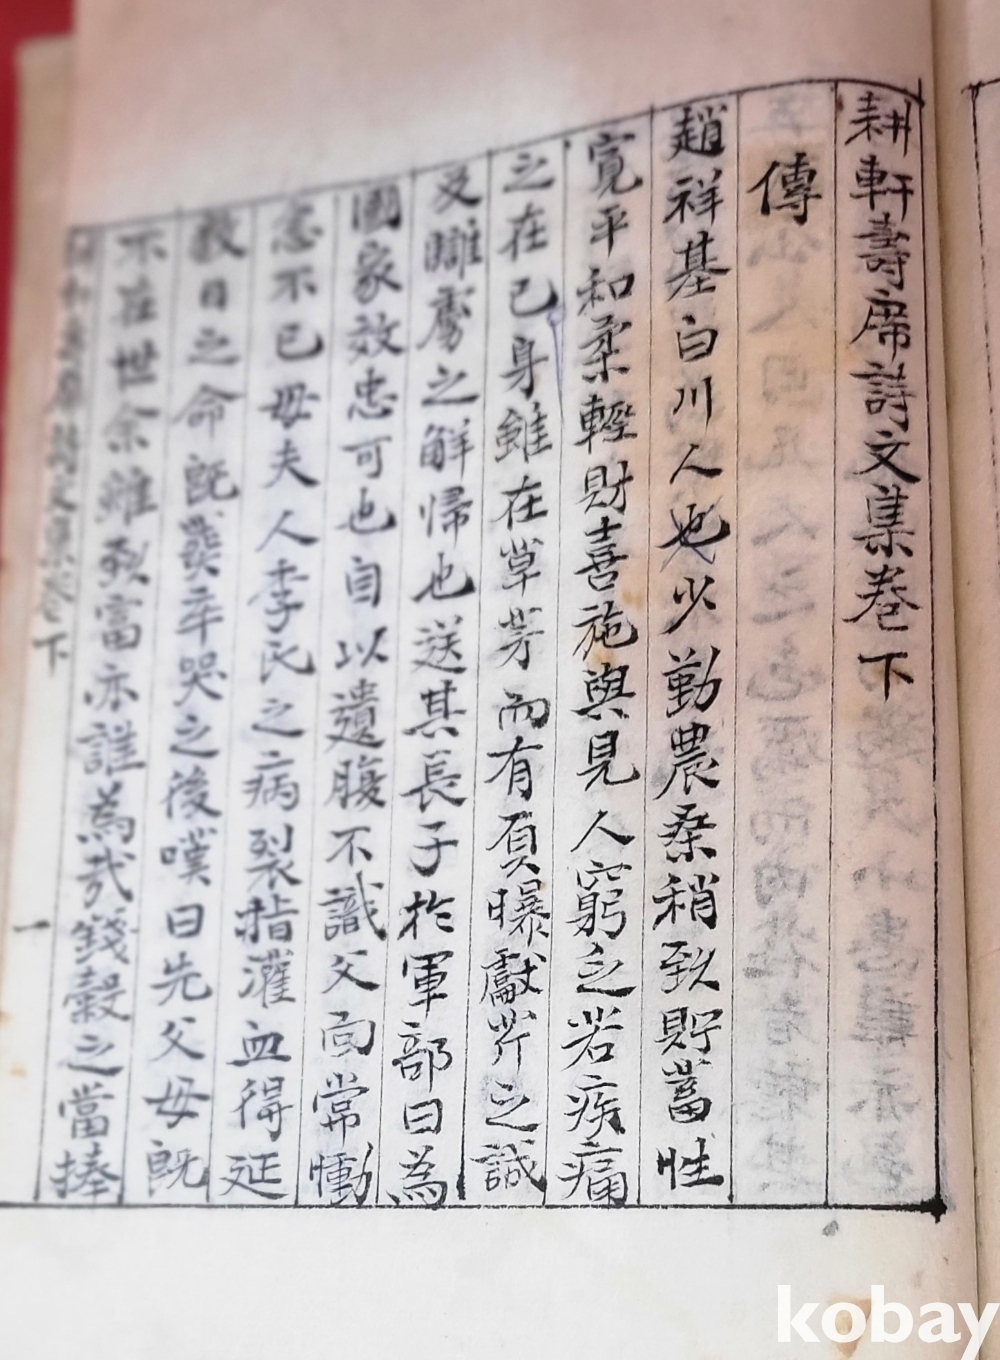 耕軒壽席詩文集卷下
傳
趙祥基白川人也少勤農桑稍致貯蓄性
寬平和柔輕財喜施與見人窮乏若疾痛
之在已身雖在草芥而有負曝獻芹之誠
及讎虜之解歸也送其長子於軍部曰為
國家效忠可也自以遺腹不識父面常慟
念不已母夫人李氏之病裂指灌血得延
數日之命既卒哭之後嘆曰先父母既
不在世余雖致富亦誰為哉錢穀之當捧
耕軒壽席詩文集卷下
一
kobay